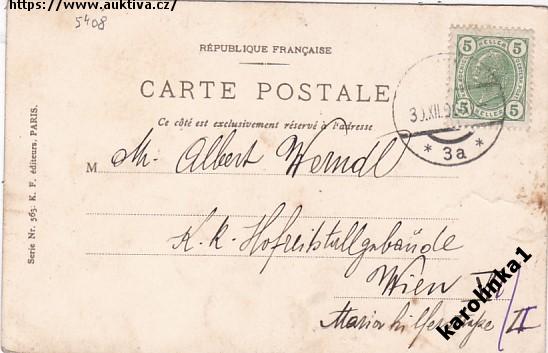 https://www.auktiva.cz/
5408
RÉPUBLIQUE FRANÇAISE
CARTE POSTALE
Ce côté est exclusivement réservé à l'adresse
5 HELLER 5
5 HELLER 5
30.XII.
* 3a *
M M. Albert Werndl
K. K. Hofreitstallgebäude
Wien
Mariahilferstrasse / II
Serie Nr. 563: K. F. éditeurs, PARIS.
karolinka1